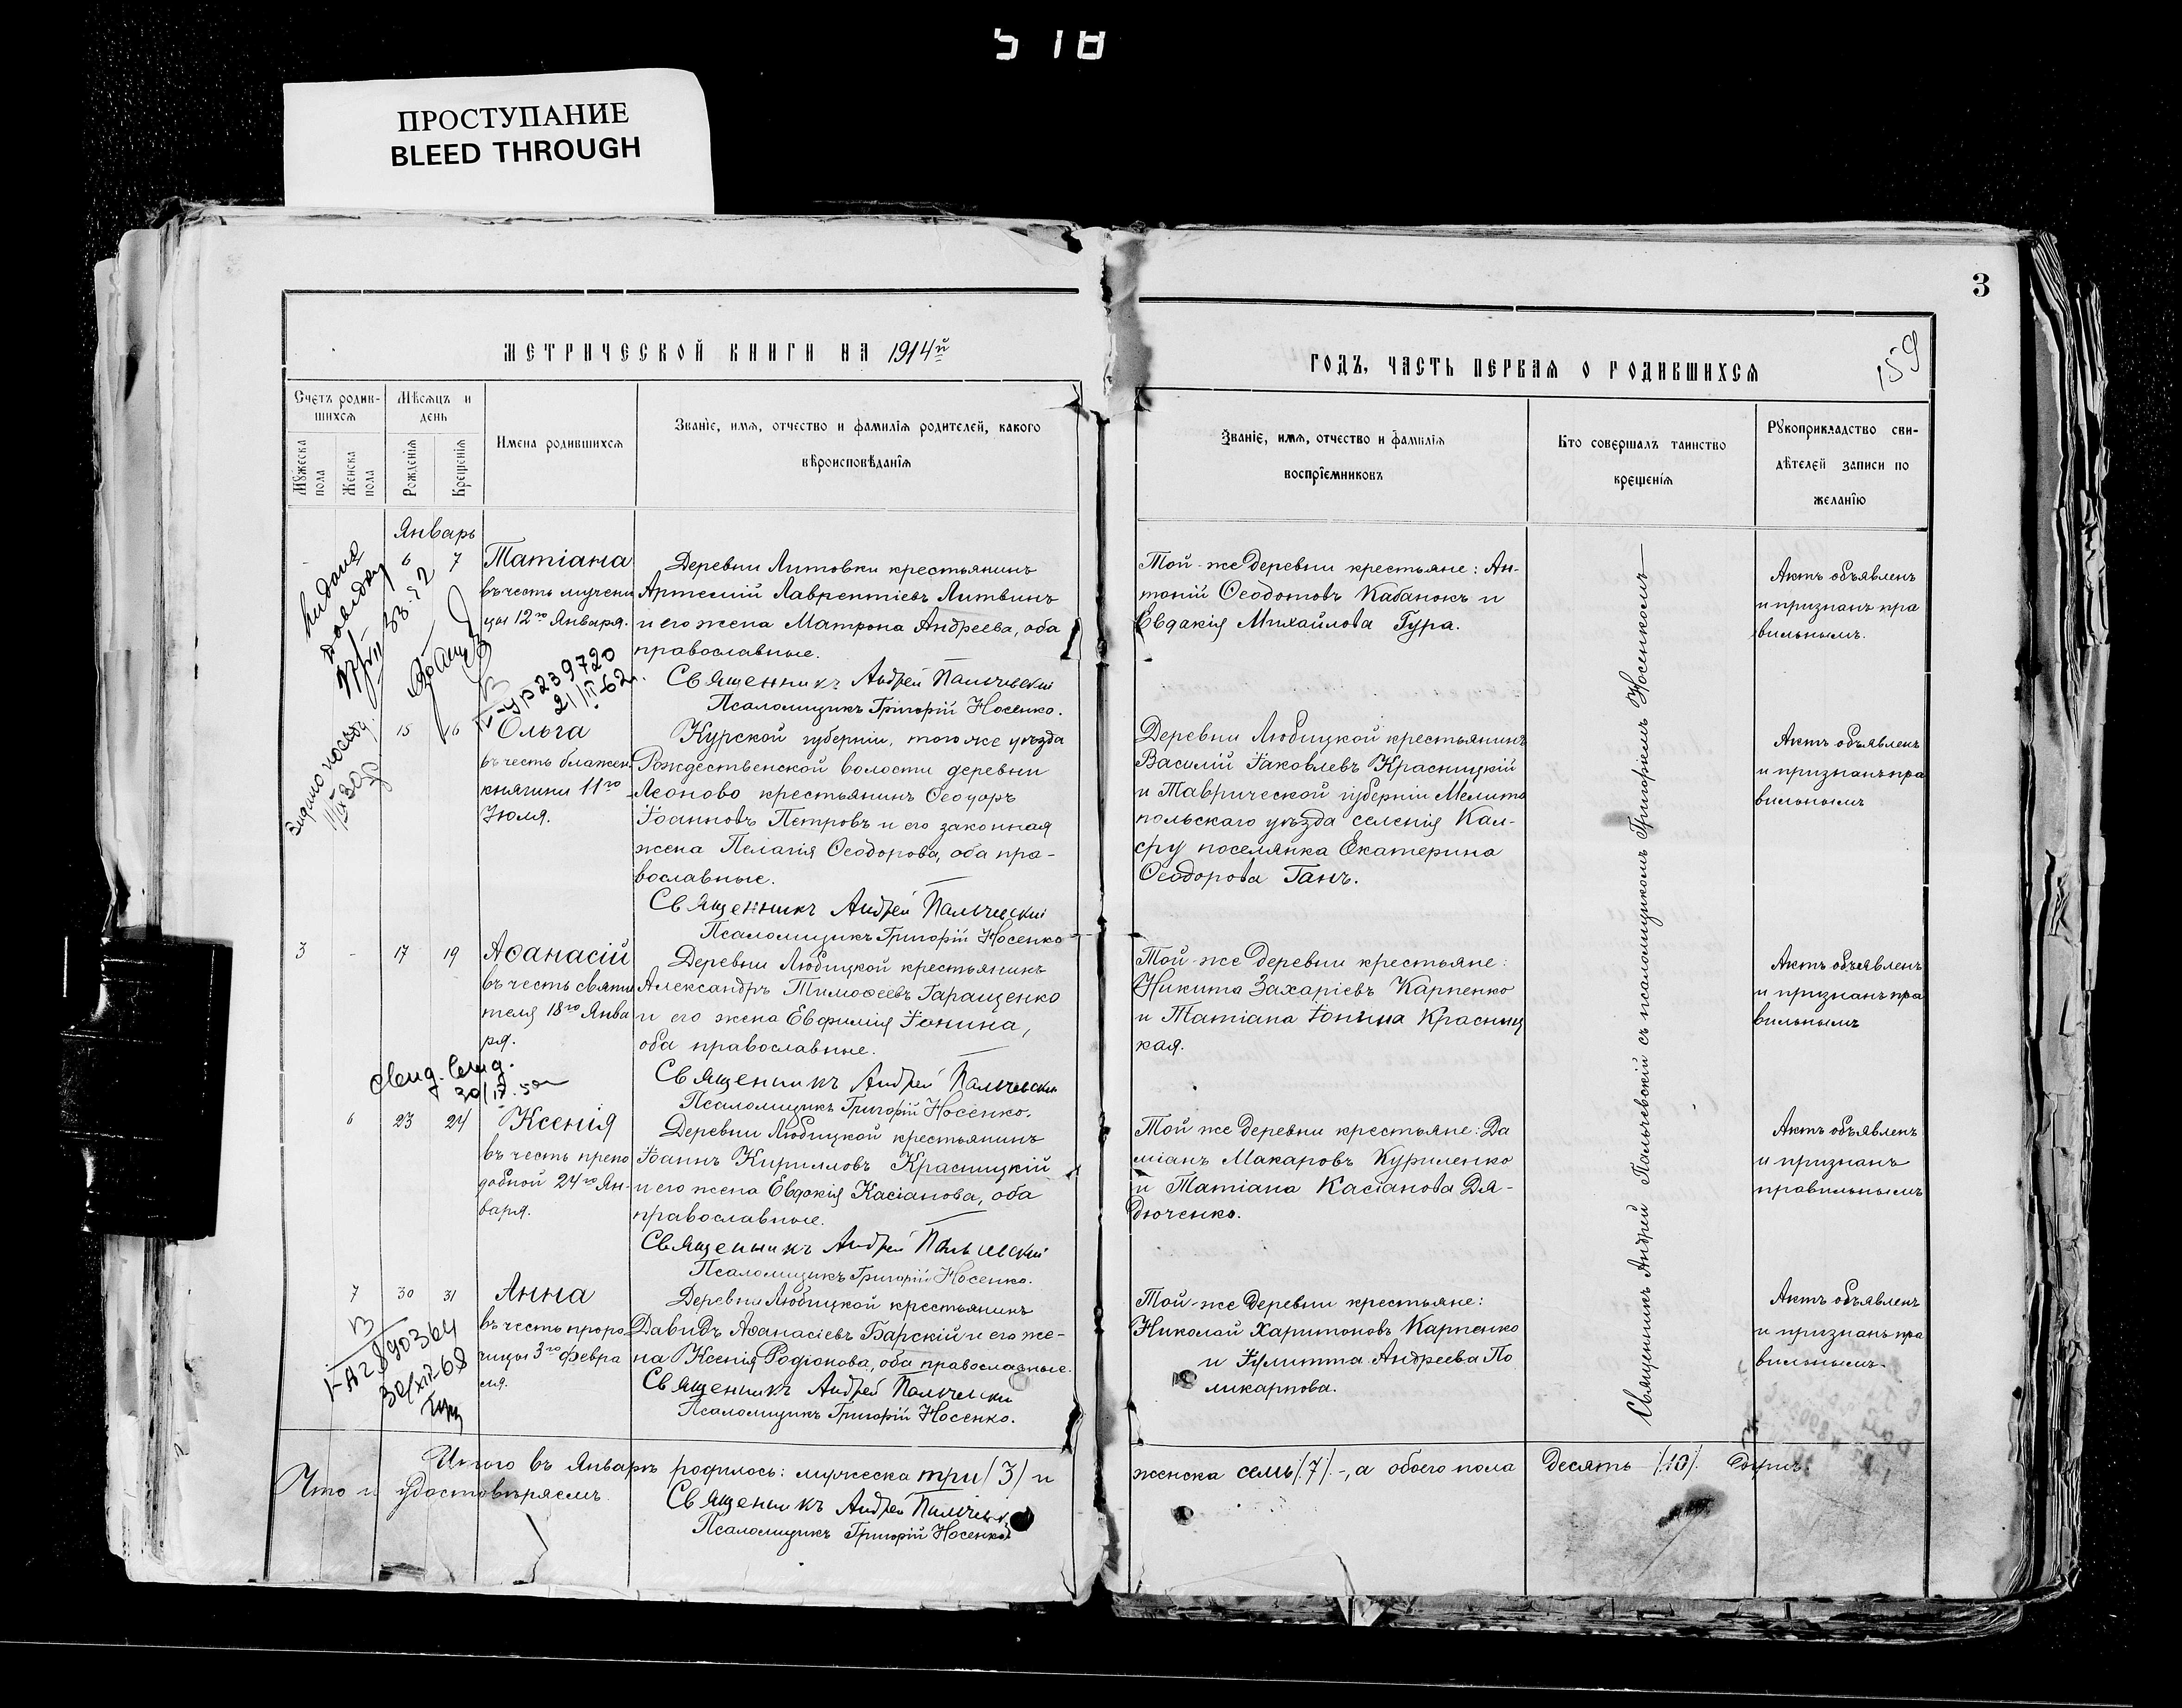 518
ПРОСТУПАНИЕ
BLEED THROUGH
МЕТРИЧЕСКОЙ КНИГИ НА 1914й
Счетъ родив-
шихся
Мѣсяцъ и
день
Мужеска
пола
Женска
пола
Рожденія
Крещенія
Имена родившихся
Званіе, имя, отчество и фамилія родителей, какого
вѣроисповѣданія
Январь
6 7
Татіана
въ честь мучени
цы 12го Января.
Деревни Литовки крестьянинъ
Артемій Лаврентіевъ Литвинъ
и его жена Матрона Андреева, оба
православные.
Священникъ Андрей Пальчевскій
Псаломщикъ Григорій Носенко.
239720
15 16
Ольга
въ честь блажен.
княгини 11го
Іюля.
Курской губерніи, того же уѣзда
Рождественской волости деревни
Асоново крестьянинъ Ѳеодоръ
Іоанновъ Петровъ и его законная
жена Пелагія Ѳеодорова, оба пра-
вославные.
Священникъ Андрей Пальчевскій
Псаломщикъ Григорій Носенко
3 - 17 19
Аѳанасій
въ честь святи
теля 18го Янва
ря.
Деревни Любицкой крестьянинъ
Александръ Тимоѳеевъ Гаращенко
и его жена Евфимія Іонина,
оба православные.
Священникъ Андрей Пальчевскій
Псаломщикъ Григорій Носенко.
6 23 24
Ксенія
въ честь препо
добной 24го Ян-
варя.
Деревни Любицкой крестьянинъ
Іоаннъ Кирилловъ Красницкій
и его жена Евдокія Касіанова, оба
православные.
Священникъ Андрей Пальчевскій
Псаломщикъ Григорій Носенко.
7 30 31
Анна
въ честь проро
чицы 3го Февра
ля.
Деревни Любицкой крестьянинъ
Давидъ Аѳанасіевъ Барскій и его же-
на Ксенія Родіонова, оба православные.
Священникъ Андрей Пальчевскій
Псаломщикъ Григорій Носенко.
Итого въ Январѣ родилось: мужеска три (3) и
Что и удостовѣряемъ.
Священникъ Андрей Пальчевскій
Псаломщикъ Григорій Носенко.
3
159
ГОДЪ, ЧАСТЬ ПЕРВАЯ О РОДИВШИХСЯ
Званіе, имя, отчество и фамилія
воспріемниковъ
Кто совершалъ таинство
крещенія
Рукоприкладство сви-
дѣтелей записи по
желанію
Той-же деревни крестьяне: Ан-
тоній Ѳеодотовъ Кабанокъ и
Евдакія Михайлова Гура.
Актъ объявленъ
и признанъ пра
вильнымъ.
Деревни Любицкой крестьянинъ
Василій Іаковлевъ Красницкій
и Таврической губерніи Мелито
польскаго уѣзда селенія Кал-
фу поселянка Екатерина
Ѳеодорова Ганъ.
Актъ объявленъ
и признанъ пра
вильнымъ
Той-же деревни крестьяне:
Никита Захаріевъ Карпенко
и Татіана Іонина Красниц
кая.
Актъ объявленъ
и признанъ пра
вильнымъ
Той же деревни крестьяне: Да
міанъ Макаровъ Куриленко
и Татіана Касіанова Дя-
дюченко.
Актъ объявленъ
и признанъ
правильнымъ
Той-же деревни крестьяне:
Николай Харитоновъ Карпенко
и Іулитта Андреева По
ликарпова.
Актъ объявленъ
и признанъ пра
вильнымъ.
Священникъ Андрей Пальчевскій съ псаломщикомъ Григоріемъ Носенкомъ
женска семь (7) -, а обоего пола десять (10) душъ.